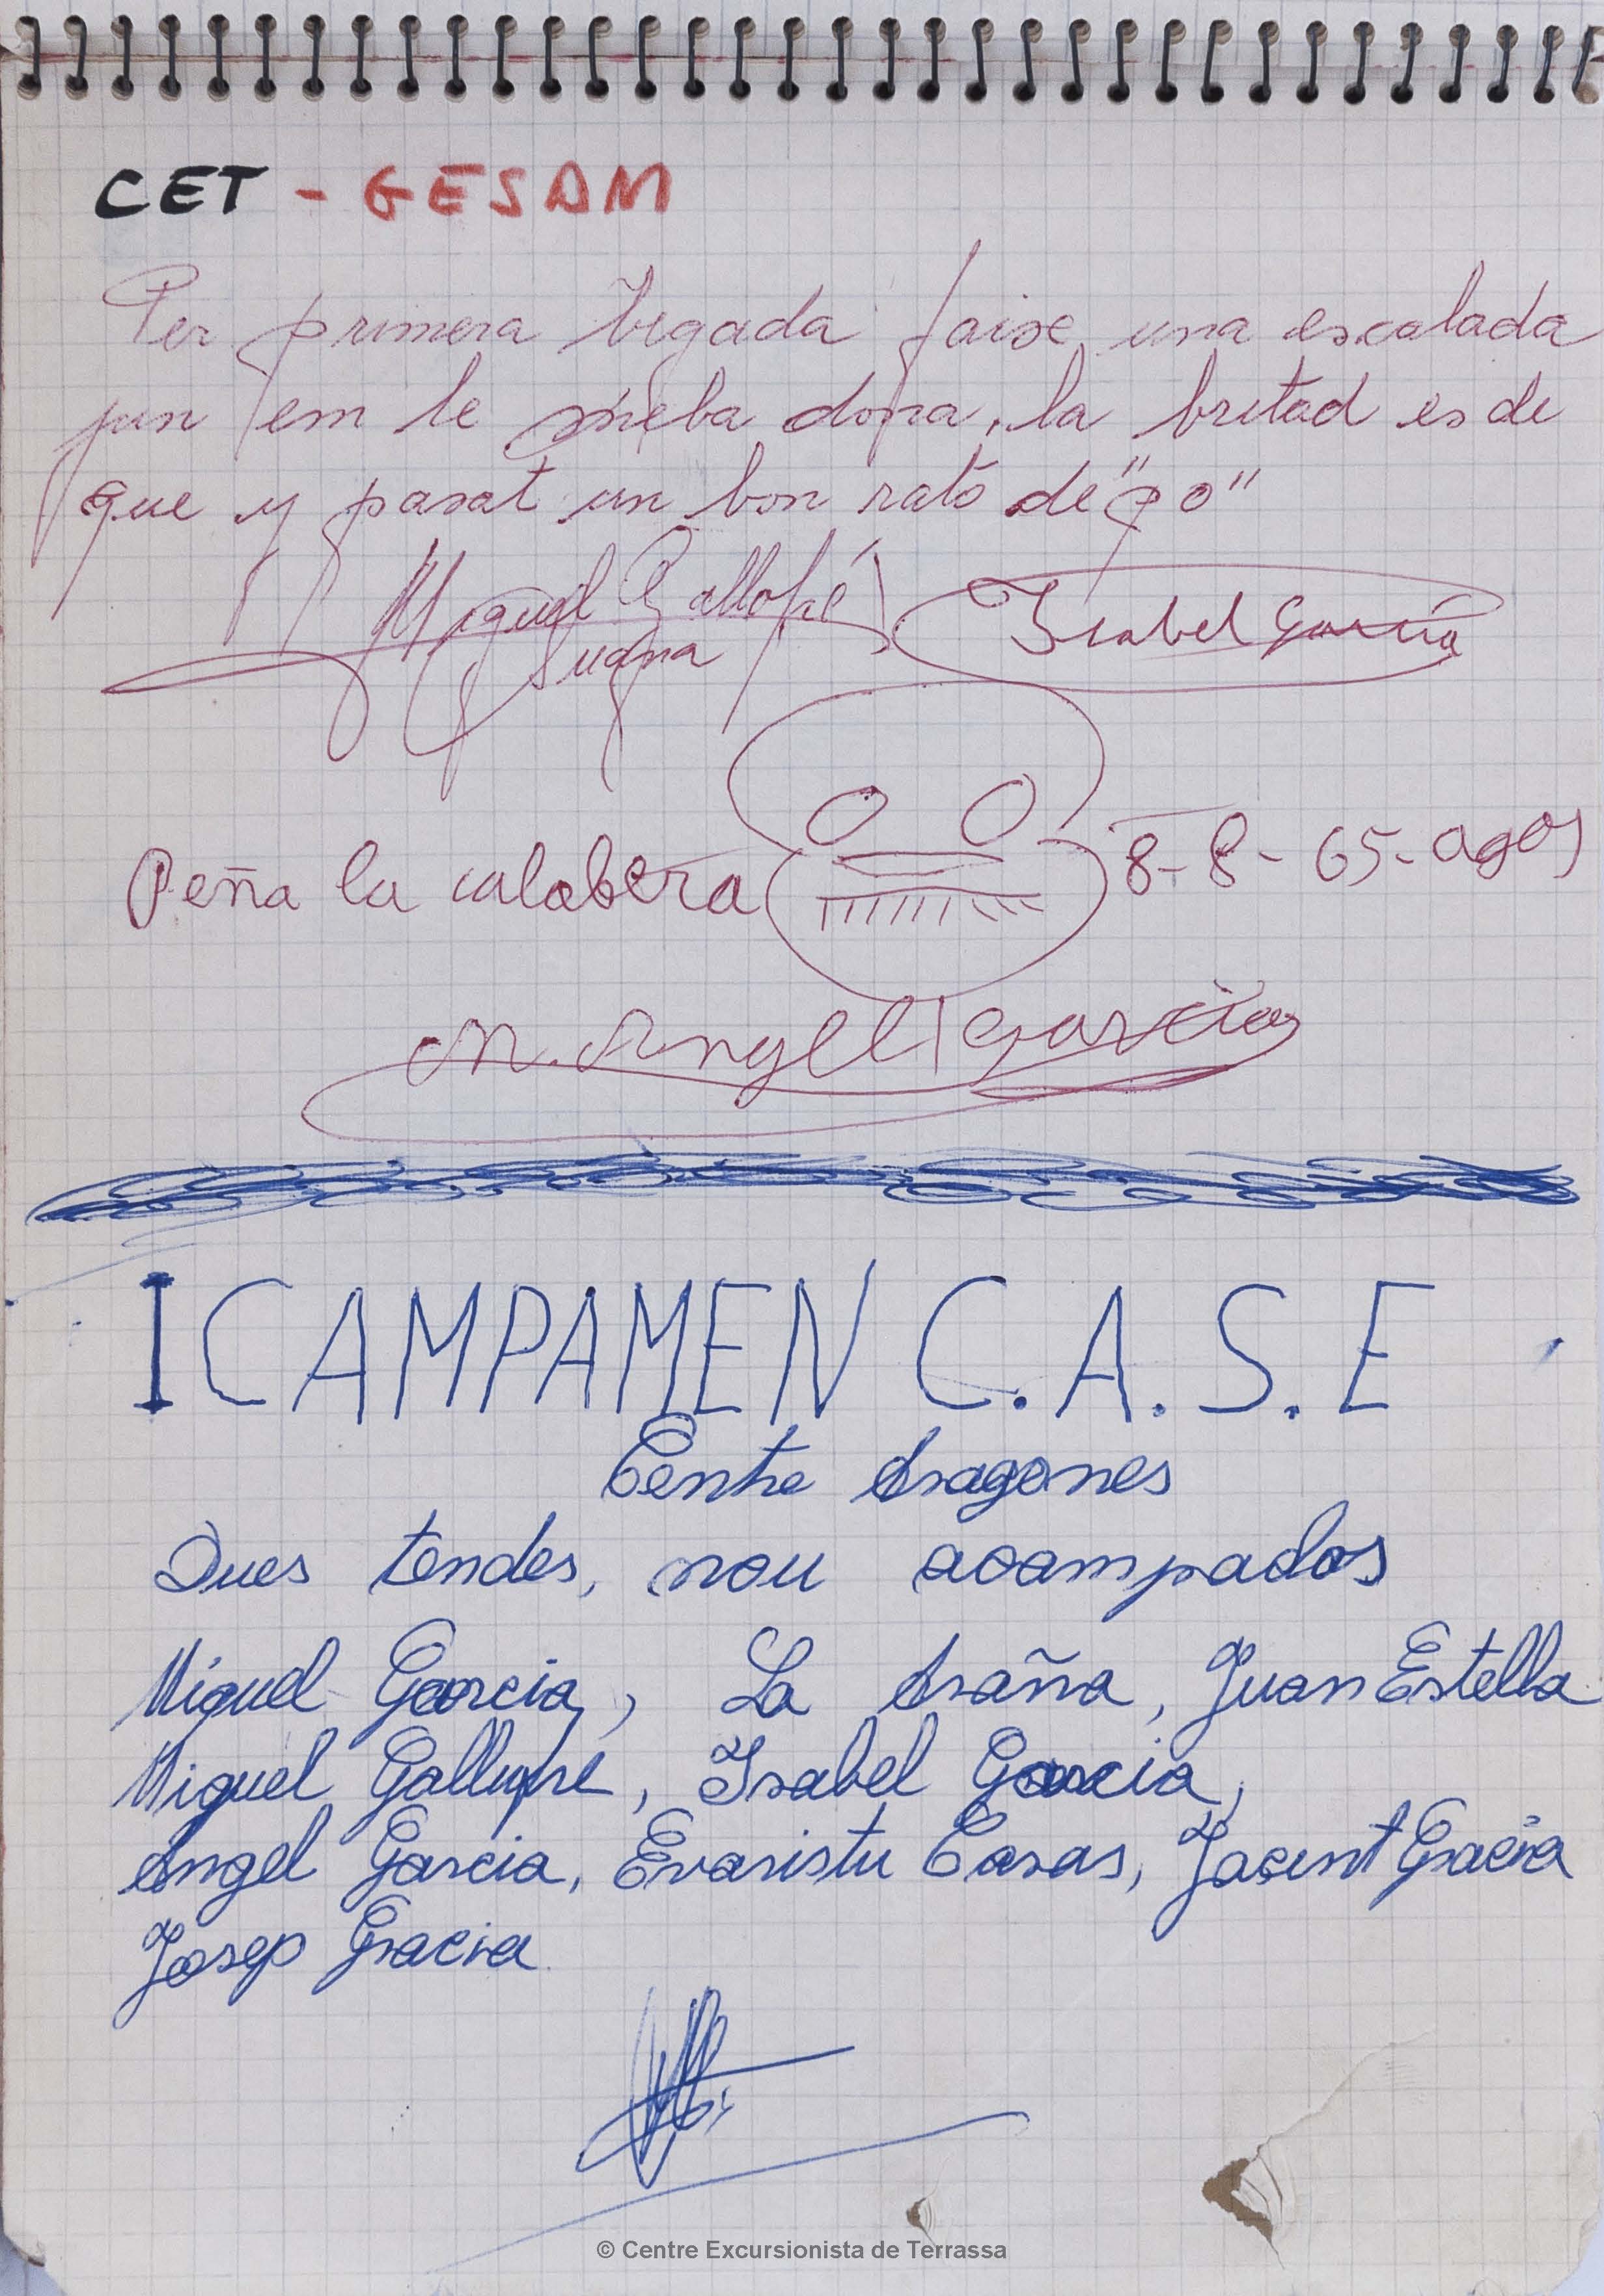 CET - GESAM
Per primera begada faise una escalada
jun em le meba dona, la britad es de
que y pasat un bon rato de "po"
Miguel Gallofré Isabel Garcia
Peña la calabera 8-8-65-agos
M. Angel Garcia
I CAMPAMEN C.A.S.E
Centre Aragones
Dues tendes, nou acampados
Miguel Garcia, La Araña, Juan Estella
Miguel Gallufre, Isabel Garcia,
Angel Garcia, Evaristu Casas, Jacint Gracia
Josep Gracia
© Centre Excursionista de Terrassa